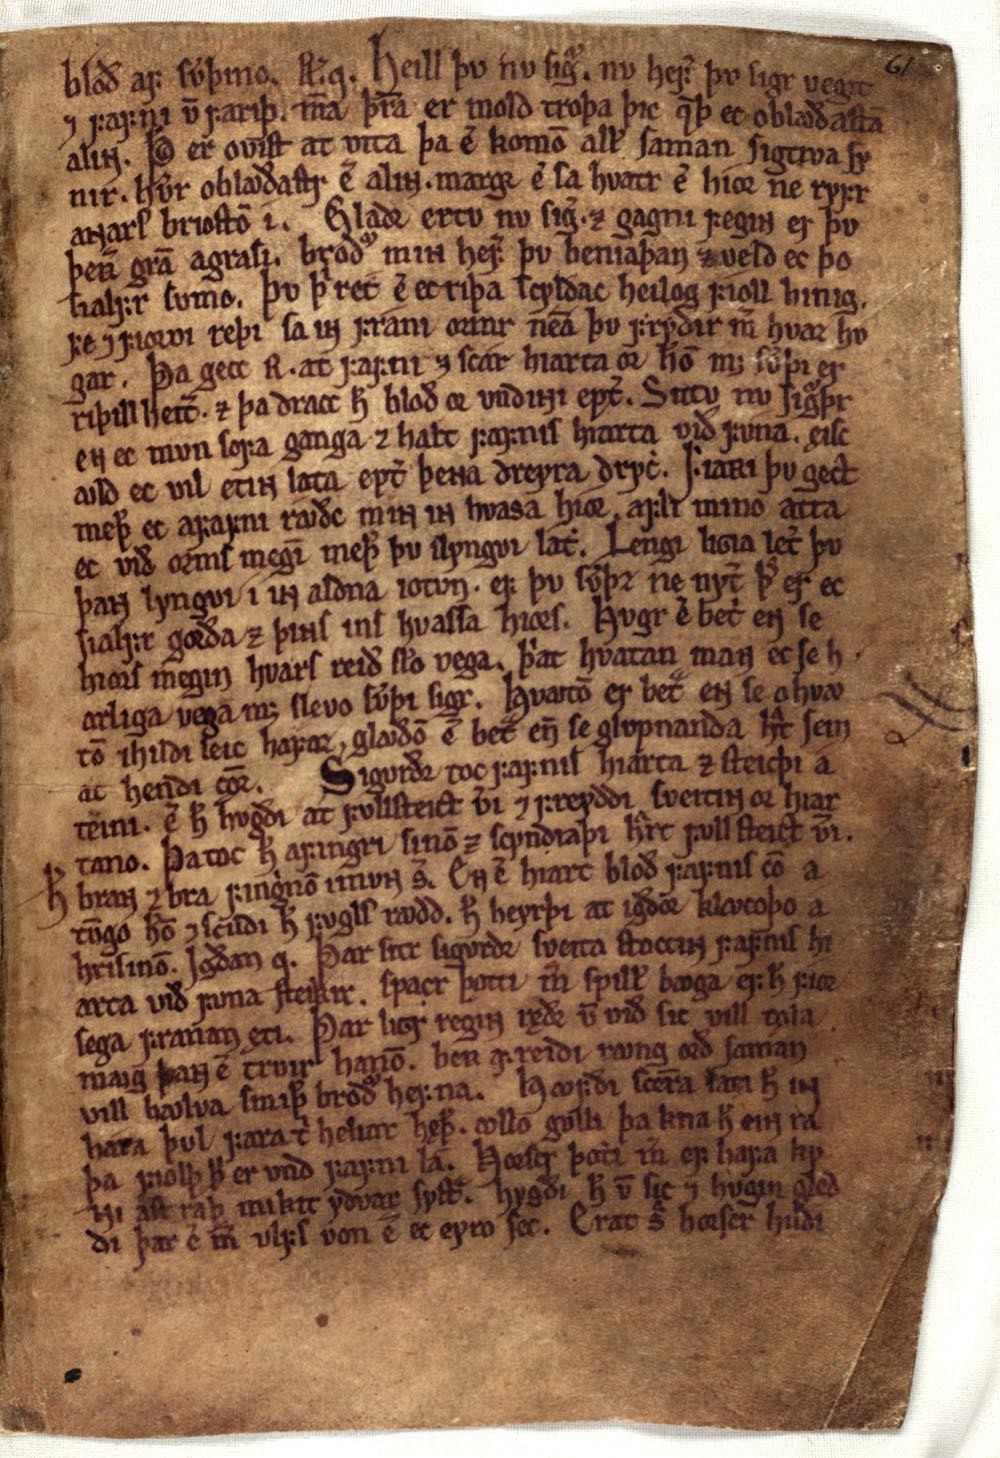 61
bloð af sverþino. R. q. Heill þv nv sigvrþr. nv hefir þv sigr vegit
⁊ fafni v̄ farit. m̄a þr̄a er mold troþa þic q̄þ ec oblaꜹðasta
alin. Þ er ovist at vita þa ē komō all' saman sigtiva sy
nir. hv̄r oblaꜹðastr ē alin. margr ē sa hvatr ē hior ne ryfr
annars briostō i. Glaðr ertv nv sig̃. ⁊ gagni fegin er þv
þeR̄ grā a grasi. broðvr min hef̃ þv beniaþan ⁊ veld ec þo
sialfr svmo. Þv þ̄ rētt ē ec riþa scyldac heilog fioll hinig.
fe ⁊ fiorvi reþi sa in frani ormr nēa þv fryðir m̄ hvar hv
gar. Þa gecc R. at fafni ⁊ scar hiarta or hō m; sv̄þi er
riþill heit̄. ⁊ þa dracc h̄ bloð or vndinni ept̄. Sittv nv sig̃þr
en ec mvn sofa ganga ⁊ halt fafnis hiarta við fvna. eisc
aꜹld ec vil etin lata ept̄ þena dreyra drycc. Fiarri þv gect
meþ̄ ec a fafni raꜹðc min in hvasa hior. afli mino atta
ec við orms megī meþ̄ þv i lyngvi lat̄. Lengi ligia let̄ þv
þan lyngvi i in aldna iotvn. ef þv sv̄þz ne nyt̄ þ̄ er ec
sialfr gorða ⁊ þins ins hvassa hiors. Hvgr ē bet̄ en se
hiors megin hvars reið sl'o vega. þ̄at hvatan man ec se h
arliga vega m; slevo sv̄þi sigr. Hvatō er bet̄ en se o hvaꜹ
tō i hildi leic hafaz, glaꜹðō ē bet̄ en se glvpnanda hv̄t sem
at hendi cōr. Sigvrðr toc fafnis hiarta ⁊ steicþi a
teini. ē h̄ hvgði at fvllsteict v̄i ⁊ freyddi sveitin or hiar
tano. Þa toc h̄ a fingri sinō ⁊ scyndiaþi hv̄t fvll steict v̄i.
h̄ bran ⁊ bra fingrinō i mvn s̄. En ē hiart bloð fafnis cō a
tv̄go hō ⁊ scilði h̄ fvgls raꜹdd. h̄ heyrþi at igðor klaꜹcoþo a
hrisino. Igðan q. Þar sitr sigvrðr sveita stoccin fafnis hi
arta við fvna steikir. spacr þotti m̄ spill' baꜹga ef h̄ fior
sega franan eti. Þar ligr regin ręðr v̄ við sic vill tęla
maꜹg þan ē trvir hanō. berr af reiði raꜹng orð saman
vill baꜹlva smiþ̄ broðvr hefna. Haꜹfði scēra lati h̄ in
hara þvl fara t̄ heliar heþ̄. aꜹllo gvlli þa kna h̄ ein ra
þa fiolþ þ̄ er vnd fafni lá. Horscr þotti m̄ ef hafa kỵ
ni ast raþ mikit yðvar syst̄. hygði h̄ v̄ sic ⁊ hvgin gled
di þar ē m̄ vlfs von ē ec eyro sec. Erat s̄ horscr hildi